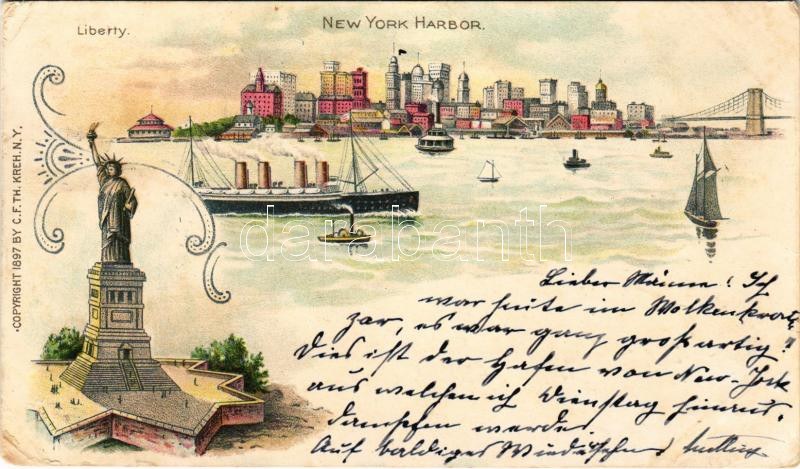 Liberty.
NEW YORK HARBOR.
·COPYRIGHT 1897 BY C.F.TH. KREH. N.Y.
darabanth
Lieber Männe! Ich
war heute im Wolkenkrat-
zar, es war ganz großartig!
Dies ist der Hafen von New-York
aus welchen ich Dienstag hinaus
dampfen werde.
Auf baldiges Wiedersehn